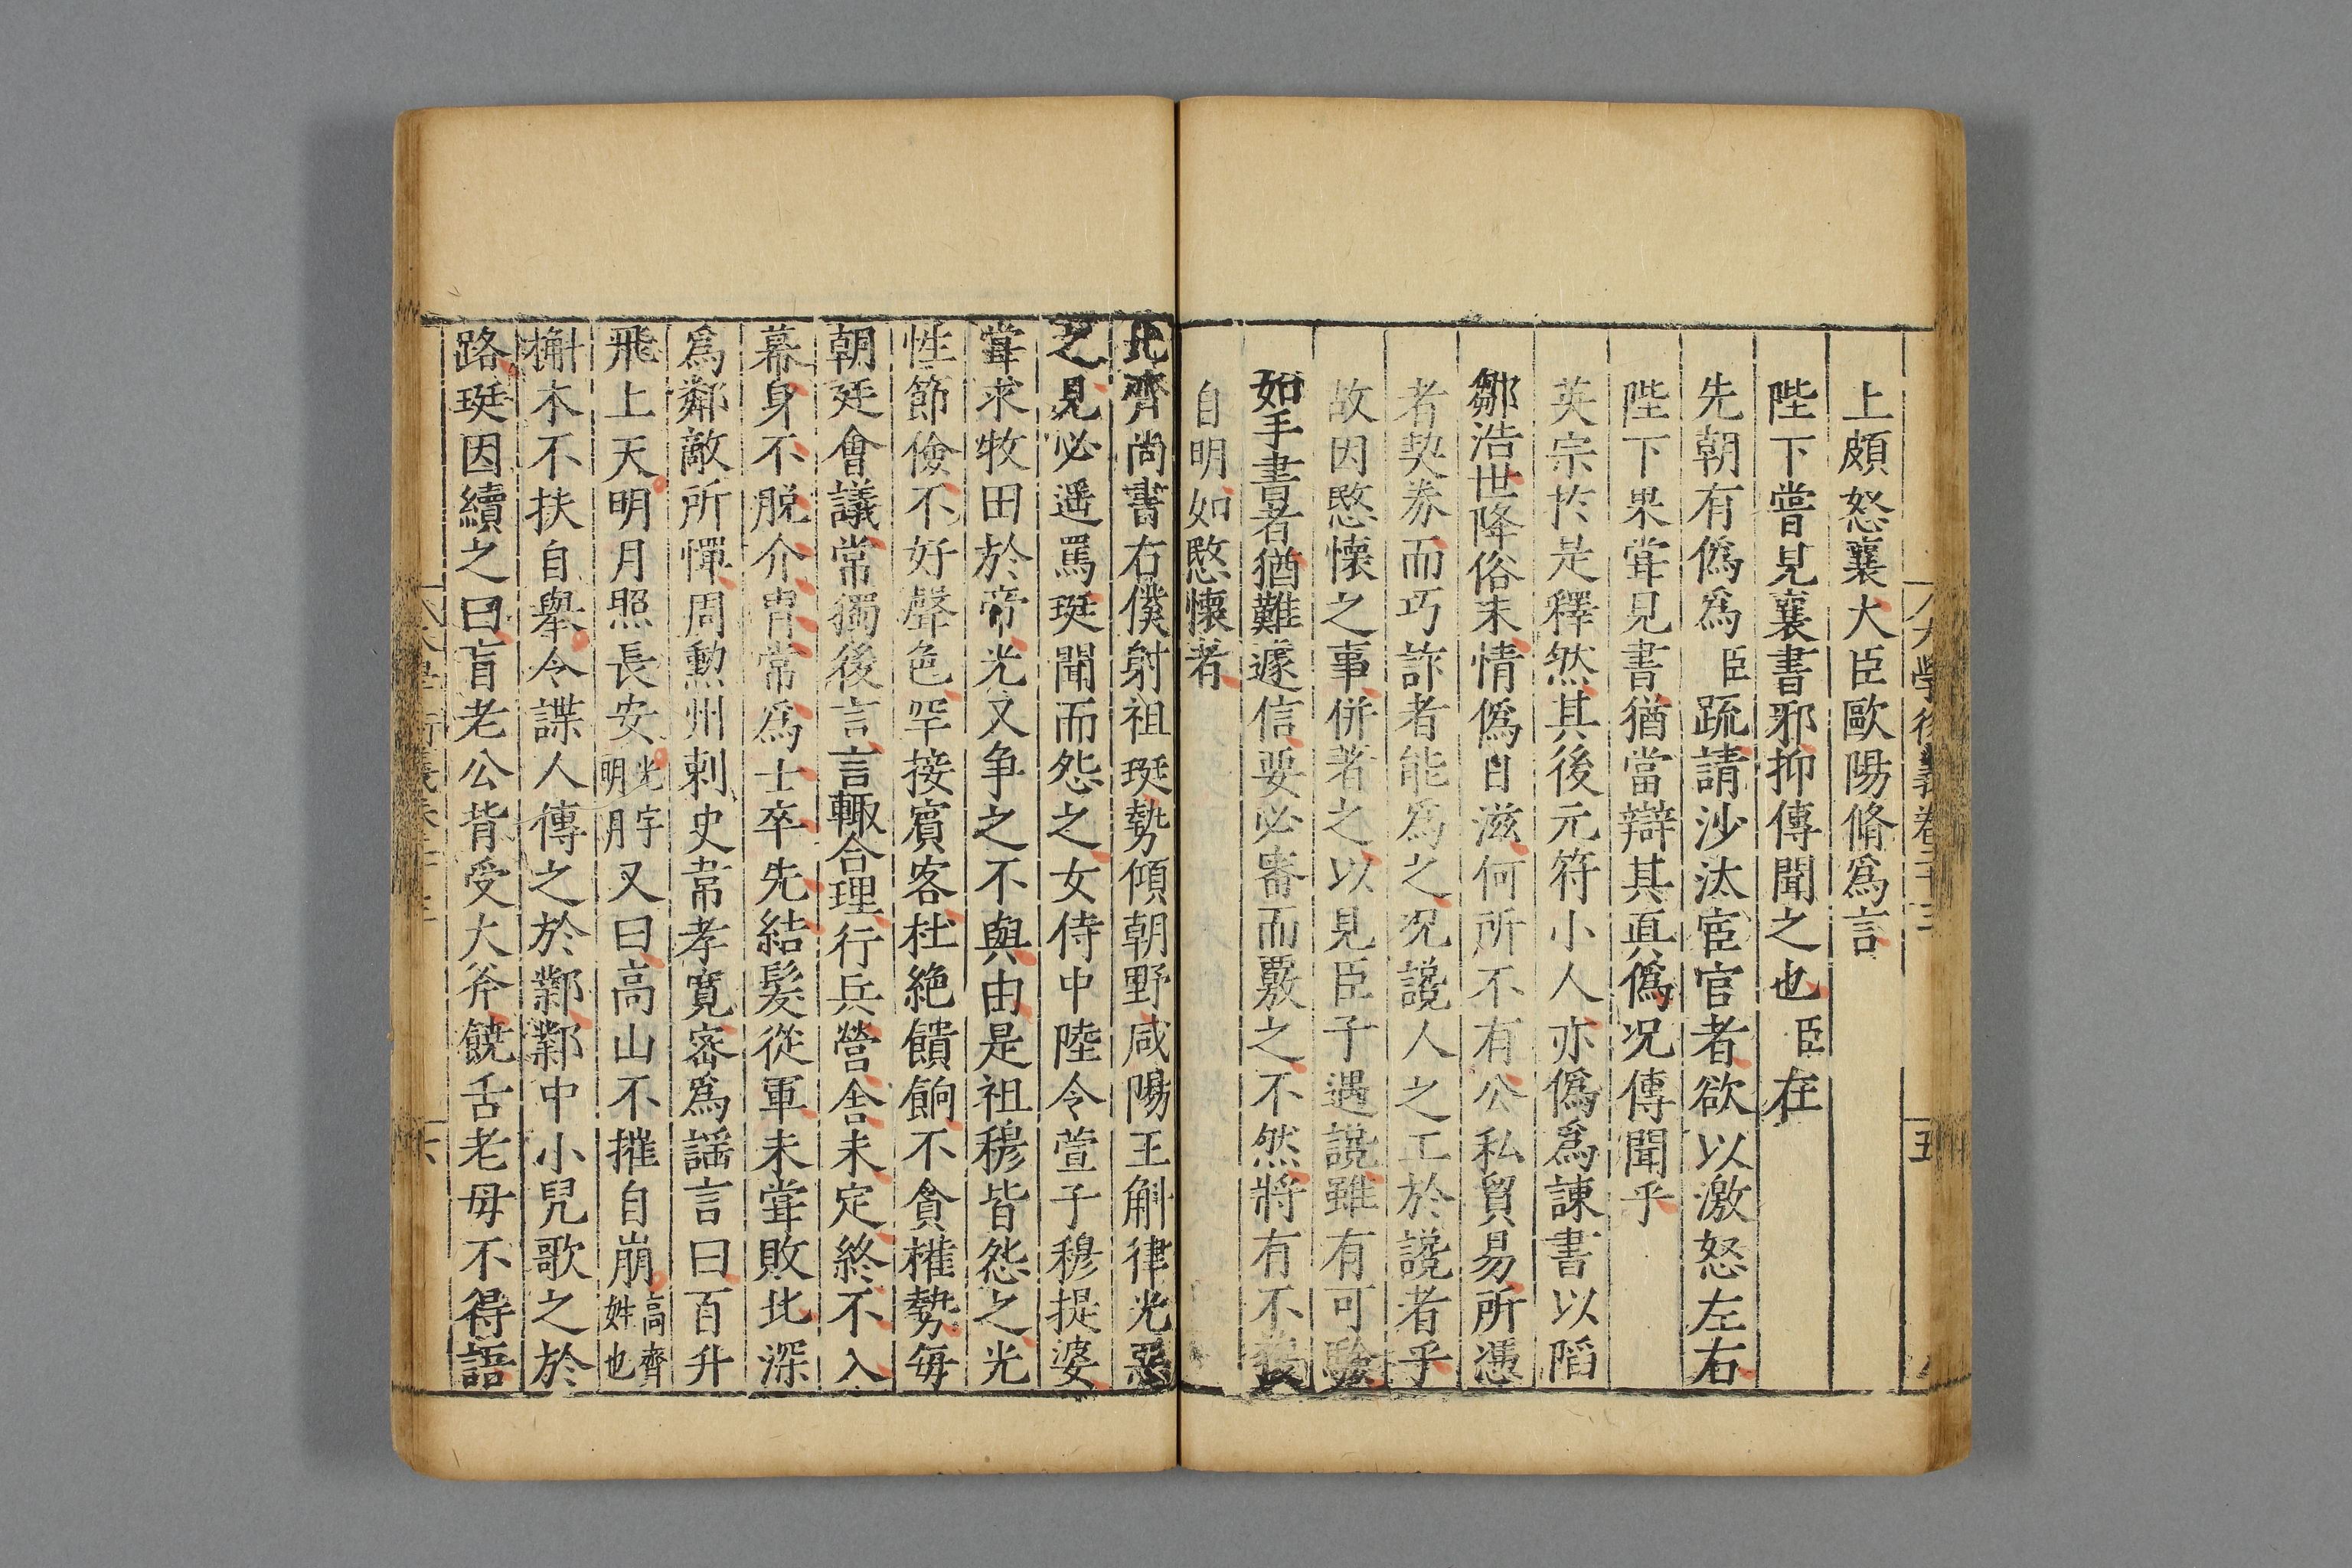 大學衍義卷二十三
五
上頗怒襄大臣歐陽脩爲言
陛下嘗見襄書邪抑傳聞之也臣在
先朝有僞爲臣疏請沙汰宦官者欲以激怒左右
陛下果甞見書猶當辯其眞僞况傳聞乎
英宗於是釋然其後元符小人亦僞爲諫書以䧟
鄒浩世降俗末情僞日滋何所不有公私貿易所憑
者契券而巧詐者能爲之况讒人之工於讒者乎
故因愍懷之事併著之以見臣子遇讒雖有可驗
如手書者猶難遽信要必審而覈之不然將有不獲
自明如愍懷者
北齊尚書右僕射祖珽勢傾朝野咸陽王斛律光惡
之見必遥罵珽聞而怨之女侍中陸令萱子穆提婆
甞求牧田於帝光又争之不與由是祖穆皆怨之光
性節儉不好聲色罕接賓客杜絶饋餉不貪權勢每
朝廷會議常獨後言言輙合理行兵營舎未定終不入
幕身不脱介胄常爲士卒先結髮從軍未甞敗北深
爲鄰敵所憚周勲州刺史韋孝寛密爲謡言曰百升
飛上天明月照長安光字明月又曰高山不摧自崩高齊姓也
槲木不扶自舉令諜人傳之於鄴鄴中小兒歌之於
路珽因續之曰盲老公背受大斧饒舌老母不得語
六